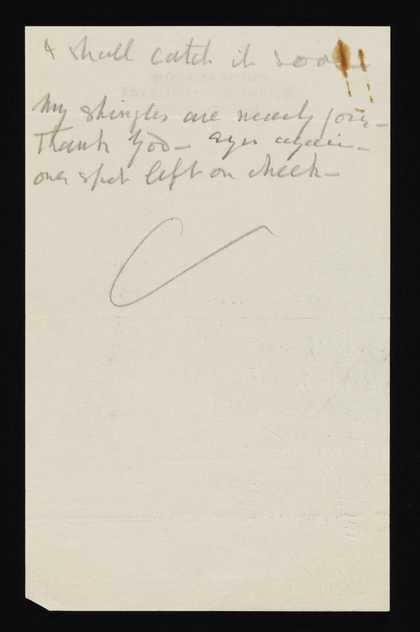 I shall catch it soon
My shingles are nearly gone –
Thank God – again –
one spot left on cheek –
C